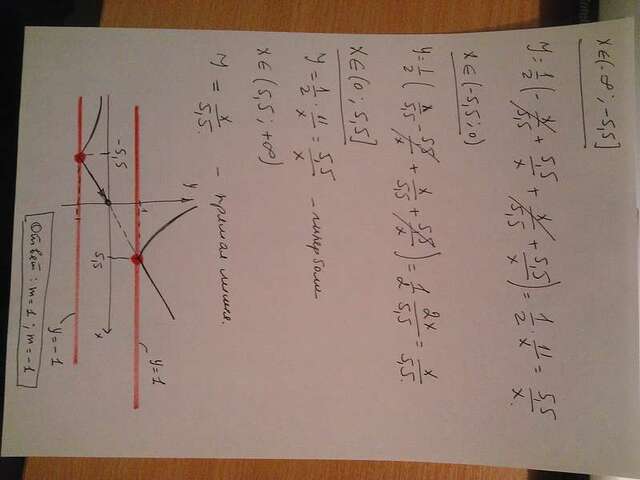 x∈(-∞; -5,5]
y = 1/2 (- x/5,5 + 5,5/x + x/5,5 + 5,5/x) = 1/2 · 11/x = 5,5/x.
x∈(-5,5; 0)
y = 1/2 (x/5,5 - 5,5/x + x/5,5 + 5,5/x) = 1/2 2x/5,5 = x/5,5.
x∈(0; 5,5]
y = 1/2 · 11/x = 5,5/x - гипербола
x∈(5,5; +∞)
y = x/5,5. - прямая линия.
y
1
y=1
-5,5
5,5
x
y=-1
Ответ: m=1; m=-1